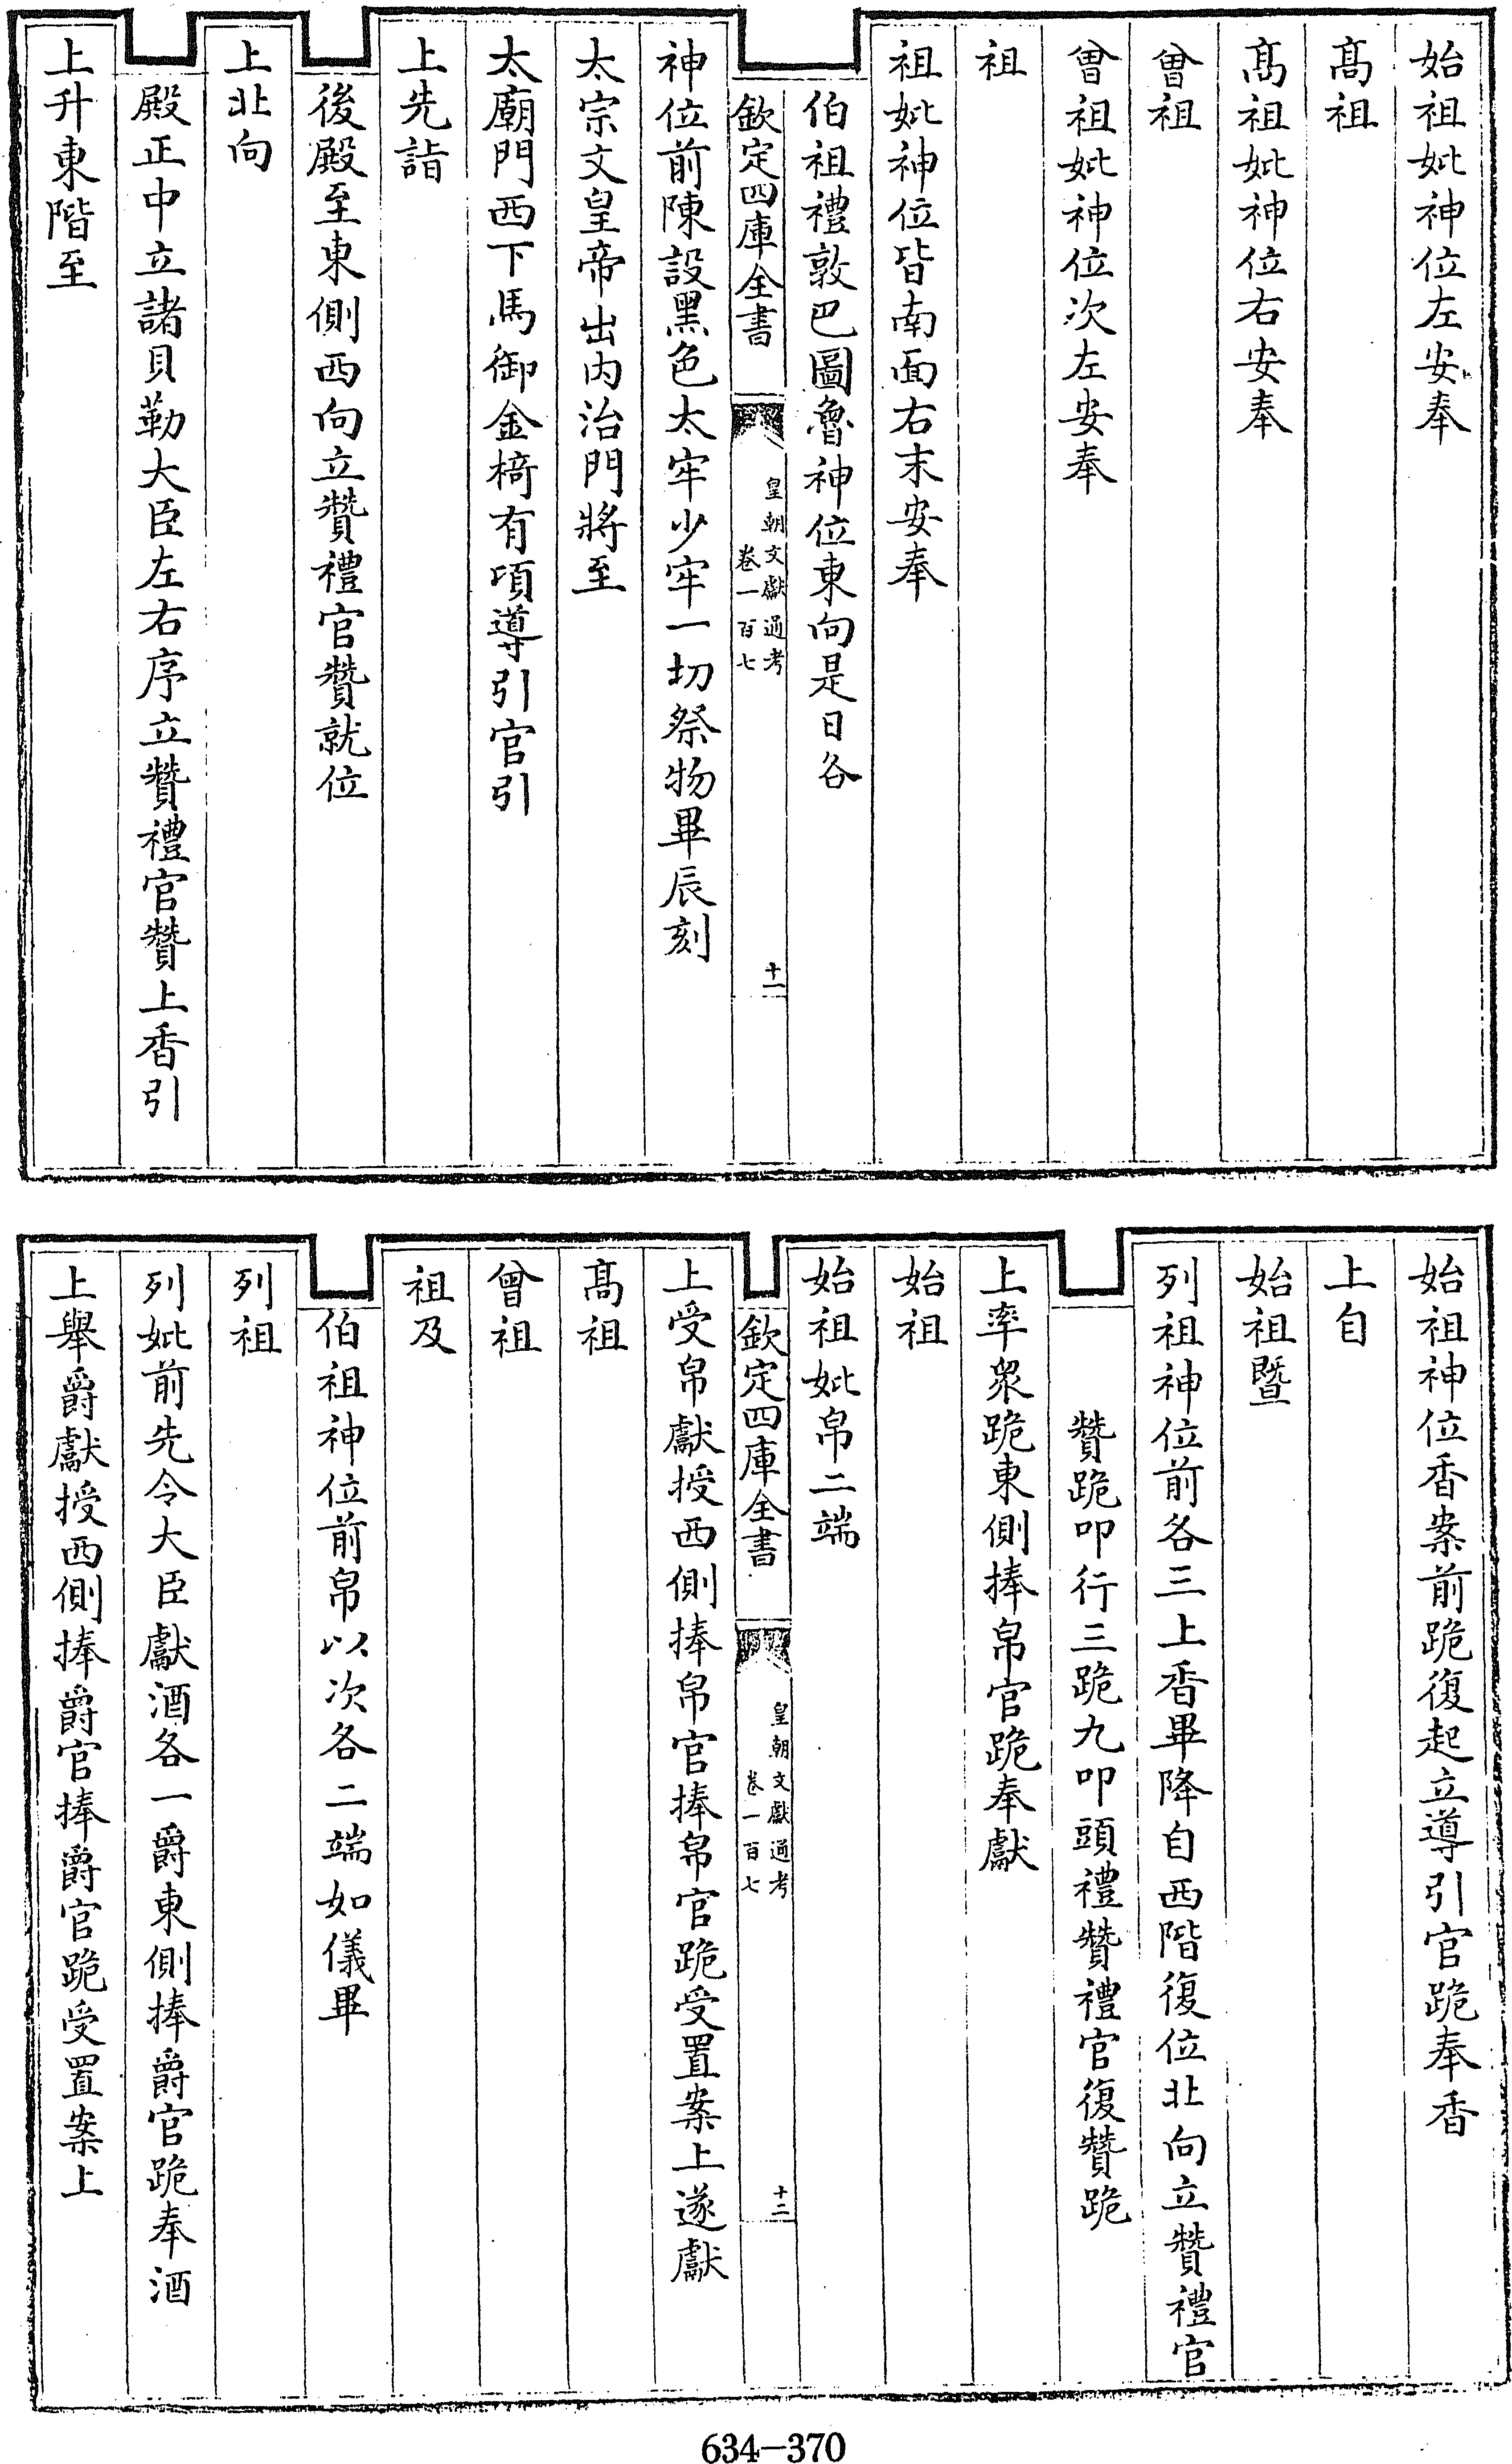 始祖妣神位左安奉
髙祖
髙祖妣神位右安奉
曾祖
曾祖妣神位次左安奉
祖
祖妣神位皆南面右末安奉
伯祖禮敦巴圖魯神位東向是日各
欽定四庫全書
皇朝文獻通考
卷一百七
十一
神位前陳設黑色太牢少牢一切祭物畢辰刻
太宗文皇帝出内治門將至
太廟門西下馬御金椅有頃導引官引
上先詣
後殿至東側西向立贊禮官贊就位
上北向
殿正中立諸貝勒大臣左右序立贊禮官贊上香引
上升東階至
始祖神位香案前跪復起立導引官跪奉香
上自
始祖暨
列祖神位前各三上香畢降自西階復位北向立贊禮官
贊跪叩行三跪九叩頭禮贊禮官復贊跪
上率衆跪東側捧帛官跪奉獻
始祖
始祖妣帛二端
欽定四庫全書
皇朝文獻通考
卷一百七
十二
上受帛獻授西側捧帛官捧帛官跪受置案上遂獻
髙祖
曾祖
祖及
伯祖神位前帛以次各二端如儀畢
列祖
列妣前先令大臣獻酒各一爵東側捧爵官跪奉酒
上舉爵獻授西側捧爵官捧爵官跪受置案上
634-370